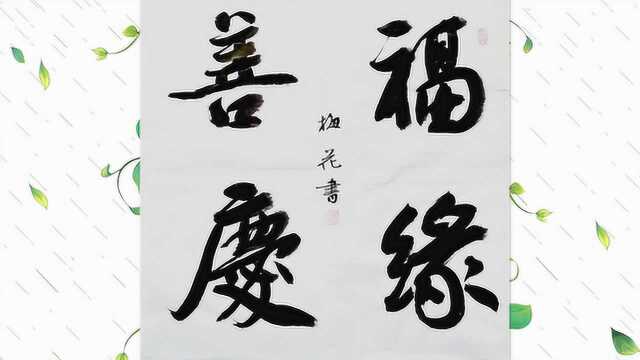 福緣
善慶
梅花書